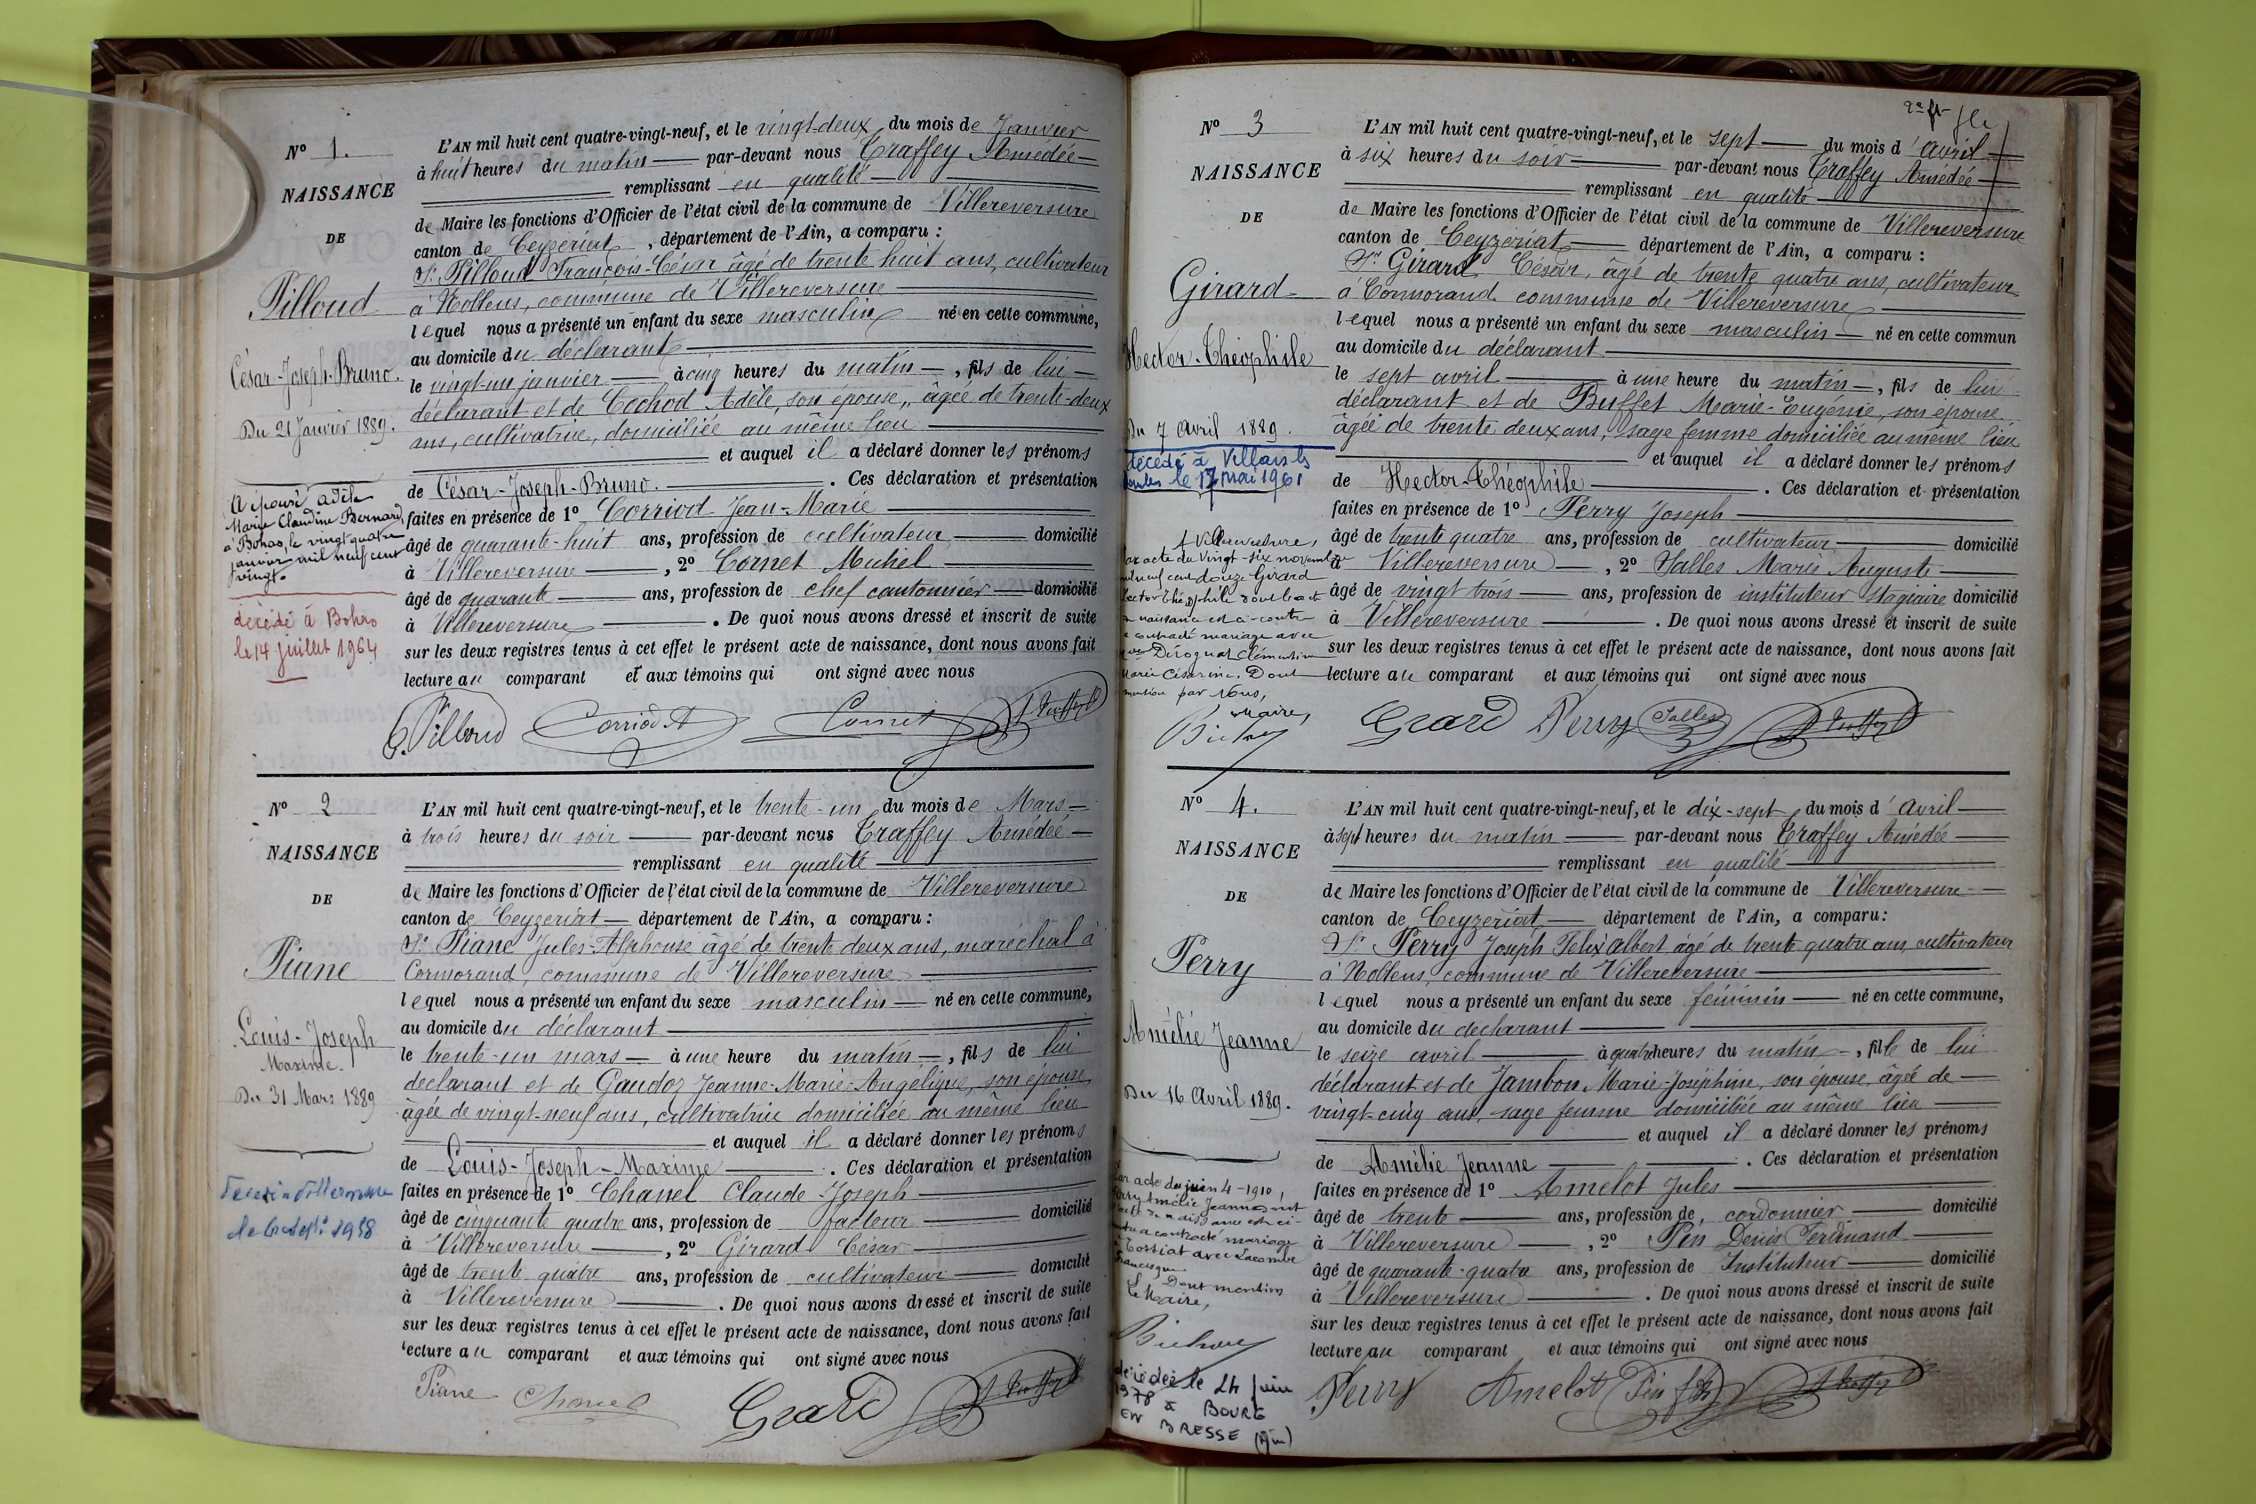 N° 1.
NAISSANCE
DE
Pilloud
César-Joseph-Bruno.
Du 21 Janvier 1889.
A épousé Adèle
Marie Claudine Bernard
à Bohas, le vingt quatre
janvier mil neuf cent
vingt.
décédé à Bohas
le 14 juillet 1964
L'AN mil huit cent quatre-vingt-neuf, et le vingt-deux du mois de Janvier
à huit heures du matin par-devant nous Traffey Amédée
remplissant en qualité
de Maire les fonctions d'Officier de l'état civil de la commune de Villereversure
canton de Ceyzeriat, département de l'Ain, a comparu :
Sr. Pilloud François-César âgé de trente huit ans, cultivateur
à Noblens, commune de Villereversure
lequel nous a présenté un enfant du sexe masculin né en cette commune,
au domicile du déclarant
le vingt-un janvier à cinq heures du matin, fils de lui
déclarant et de Cochod Adèle, son épouse, âgée de trente-deux
ans, cultivatrice, domiciliée au même lieu
et auquel il a déclaré donner les prénoms
de César-Joseph-Bruno. Ces déclaration et présentation
faites en présence de 1° Corriod Jean-Marie
âgé de quarante-huit ans, profession de cultivateur domicilié
à Villereversure, 2° Cornet Michel
âgé de quarante ans, profession de chef cantonnier domicilié
à Villereversure. De quoi nous avons dressé et inscrit de suite
sur les deux registres tenus à cet effet le présent acte de naissance, dont nous avons fait
lecture au comparant et aux témoins qui ont signé avec nous
Pilloud Corriod Cornet A Traffey
N° 2
NAISSANCE
DE
Piane
Louis-Joseph
Maxime.
Du 31 Mars 1889
L'AN mil huit cent quatre-vingt-neuf, et le trente-un du mois de Mars
à trois heures du soir par-devant nous Traffey Amédée
remplissant en qualité
de Maire les fonctions d'Officier de l'état civil de la commune de Villereversure
canton de Ceyzeriat département de l'Ain, a comparu :
Sr. Piane Jules-Alphonse âgé de trente deux ans, maréchal à
Cormorand, commune de Villereversure
lequel nous a présenté un enfant du sexe masculin né en cette commune,
au domicile du déclarant
le trente-un mars à une heure du matin, fils de lui
déclarant et de Gaudoz Jeanne-Marie-Angélique, son épouse,
âgée de vingt-neuf ans, cultivatrice domiciliée au même lieu
et auquel il a déclaré donner les prénoms
de Louis-Joseph-Maxime. Ces déclaration et présentation
faites en présence de 1° Chanel Claude-Joseph
âgé de cinquante quatre ans, profession de facteur domicilié
à Villereversure, 2° Girard César
âgé de trente quatre ans, profession de cultivateur domicilié
à Villereversure. De quoi nous avons dressé et inscrit de suite
sur les deux registres tenus à cet effet le présent acte de naissance, dont nous avons fait
lecture au comparant et aux témoins qui ont signé avec nous
Piane Chanel Girard A Traffey
N° 3
NAISSANCE
DE
Girard
Hector-Théophile
Du 7 Avril 1889.
décédé à Villars les
le 17 mai 1961
A Villereversure,
par acte du Vingt-six novembre
mil neuf cent douze Girard
Hector Théophile dont l'acte
naissance est ci-contre
a contracté mariage avec
Clémentine
Marie Césarine. Dont
mention par Nous,
Maire,
L'AN mil huit cent quatre-vingt-neuf, et le sept du mois d'avril
à six heures du soir par-devant nous Traffey Amédée
remplissant en qualité
de Maire les fonctions d'Officier de l'état civil de la commune de Villereversure
canton de Ceyzeriat département de l'Ain, a comparu :
Sr Girard César, âgé de trente quatre ans, cultivateur
à Cormorand commune de Villereversure
lequel nous a présenté un enfant du sexe masculin né en cette commun
au domicile du déclarant
le sept avril à une heure du matin, fils de lui
déclarant et de Buffet Marie-Eugénie, son épouse,
âgée de trente deux ans, sage femme domiciliée au même lieu
et auquel il a déclaré donner les prénoms
de Hector-Théophile. Ces déclaration et présentation
faites en présence de 1° Perry Joseph
âgé de trente quatre ans, profession de cultivateur domicilié
à Villereversure, 2° Salles Marie Auguste
âgé de vingt trois ans, profession de instituteur stagiaire domicilié
à Villereversure. De quoi nous avons dressé et inscrit de suite
sur les deux registres tenus à cet effet le présent acte de naissance, dont nous avons fait
lecture au comparant et aux témoins qui ont signé avec nous
Girard Perry Salles A Traffey
N° 4.
NAISSANCE
DE
Perry
Amélie Jeanne
Du 16 Avril 1889.
Par acte du juin 4-1910,
Perry Amélie Jeanne dont
l'acte de naissance est ci-
contre a contracté mariage
à Tossiat avec Lacombe
Francisque.
Dont mention
Le Maire,
décédée le 24 juin
1978 à BOURG
EN BRESSE (Ain)
L'AN mil huit cent quatre-vingt-neuf, et le dix-sept du mois d'avril
à sept heures du matin par-devant nous Traffey Amédée
remplissant en qualité
de Maire les fonctions d'Officier de l'état civil de la commune de Villereversure
canton de Ceyzeriat, département de l'Ain, a comparu :
Sr. Perry Joseph Félix Albert âgé de trente quatre ans, cultivateur
à Noblens, commune de Villereversure
lequel nous a présenté un enfant du sexe féminin né en cette commune,
au domicile du declarant
le seize avril à quatre heures du matin, fille de lui
déclarant et de Jambon Marie-Joséphine, son épouse, âgée de
vingt-cinq ans, sage femme domiciliée au même lieu
et auquel il a déclaré donner les prénoms
de Amélie Jeanne. Ces déclaration et présentation
faites en présence de 1° Amelot Jules
âgé de trente ans, profession de cordonnier domicilié
à Villereversure, 2° Pin Denis Ferdinand
âgé de quarante-quatre ans, profession de Instituteur domicilié
à Villereversure. De quoi nous avons dressé et inscrit de suite
sur les deux registres tenus à cet effet le présent acte de naissance, dont nous avons fait
lecture au comparant et aux témoins qui ont signé avec nous
Perry Amelot Pin A Traffey